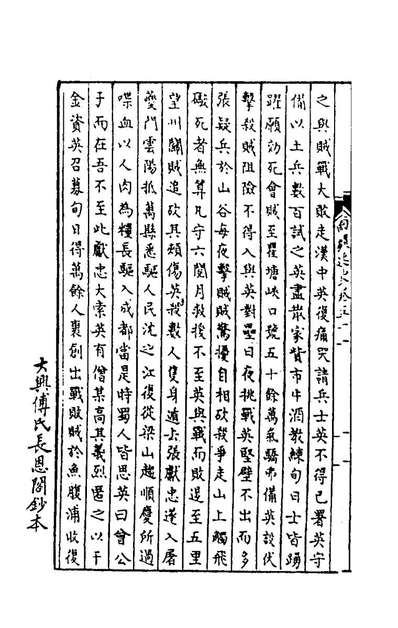 之與賊戰大敗走漢中英復痛哭請兵士英不得已署英守
備以土兵數百試之英盡散家貲市牛酒教練旬日士皆踴
躍願効死會賊至瞿塘峽口號五十餘萬氣驕弗備英設伏
擊殺賊阻險不得入與英對壘日夜挑戰英堅壁不出而多
張疑兵於山谷每夜擊賊賊驚擾自相砍殺爭走山上觸飛
礮死者無算凡守六閱月救後不至英與戰而敗退至五里
望州關賊追砍其頰傷英殺數人隻身遁去張獻忠遂入屠
夔門雲陽抵萬縣悉驅人民沈之江復從梁山趨順慶所過
喋血以人肉為糧長驅入成都當是時蜀人皆思英曰曾公
子而在吾不至此獻忠大索英有僧某高其義烈匿之以千
金資英召募旬日得萬餘人裹創出戰敗賊於魚腹浦收復
大興傅氏長恩閣鈔本